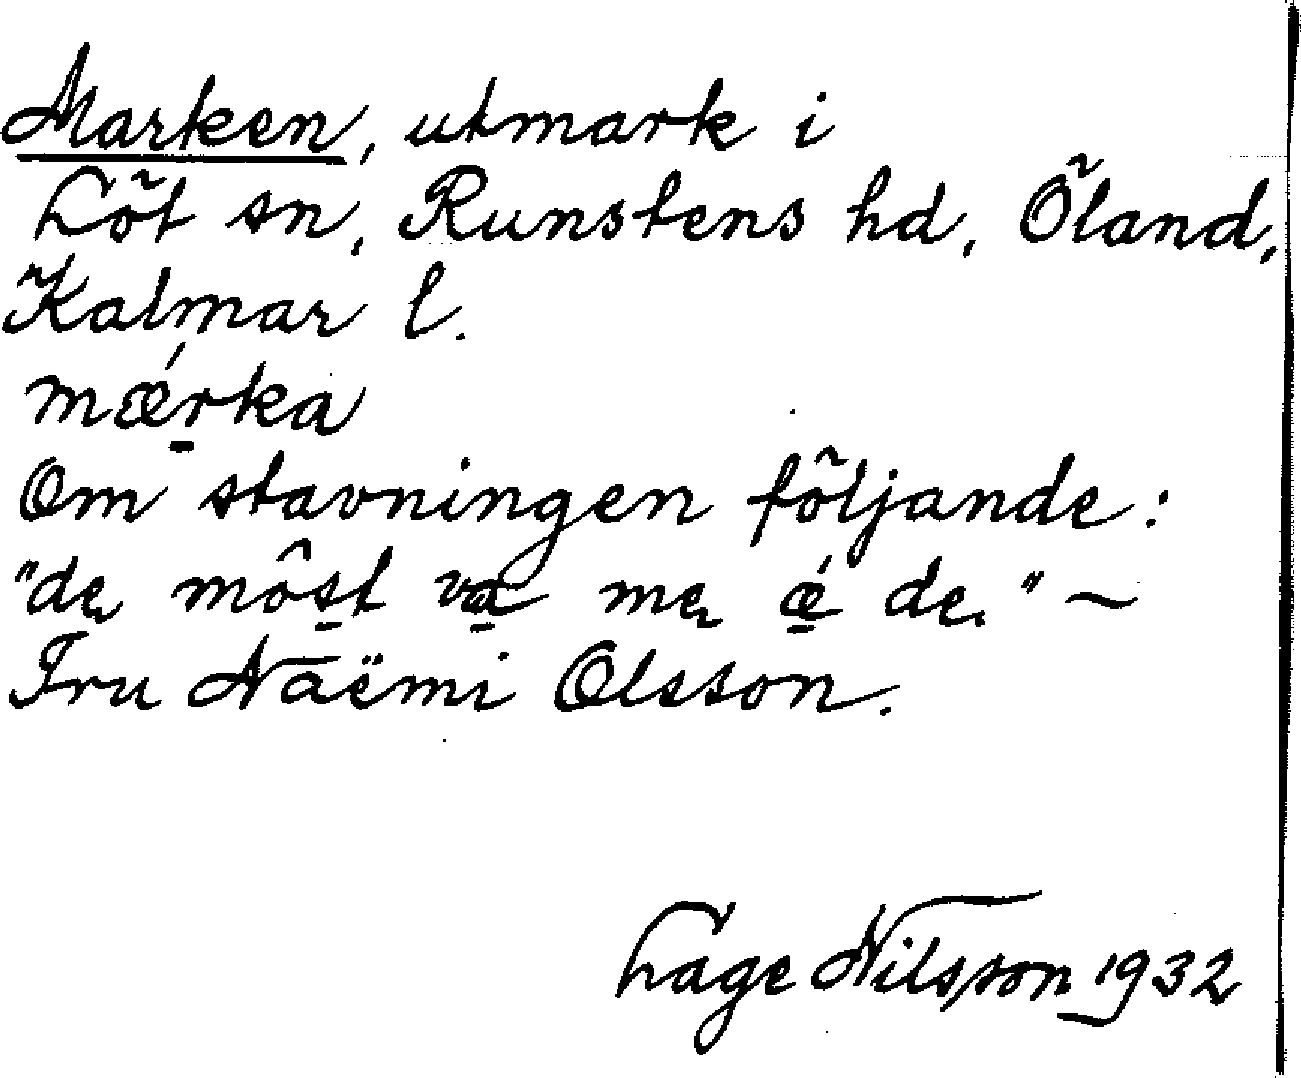 Marken, utmark i
Löt sn, Runstens hd, Öland,
Kalmar l.
mǽr̠ka
Om stavningen följande:
"de môs̠t va̠ me ǽ̠ de." —
Fru Naëmi Olsson.
Lage Nilsson 1932